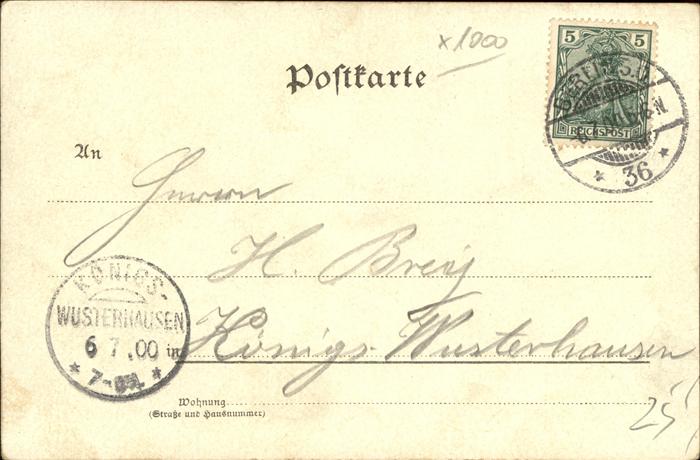 x 1000
Postkarte
5 5
REICHSPOST
BERLIN S.O.
* 36 *
An
Herrn
H.
KÖNIGS-
WUSTERHAUSEN
6 7 .00
* 7-8N. *
in Königs-Wusterhausen
Wohnung
(Straße und Hausnummer)
25